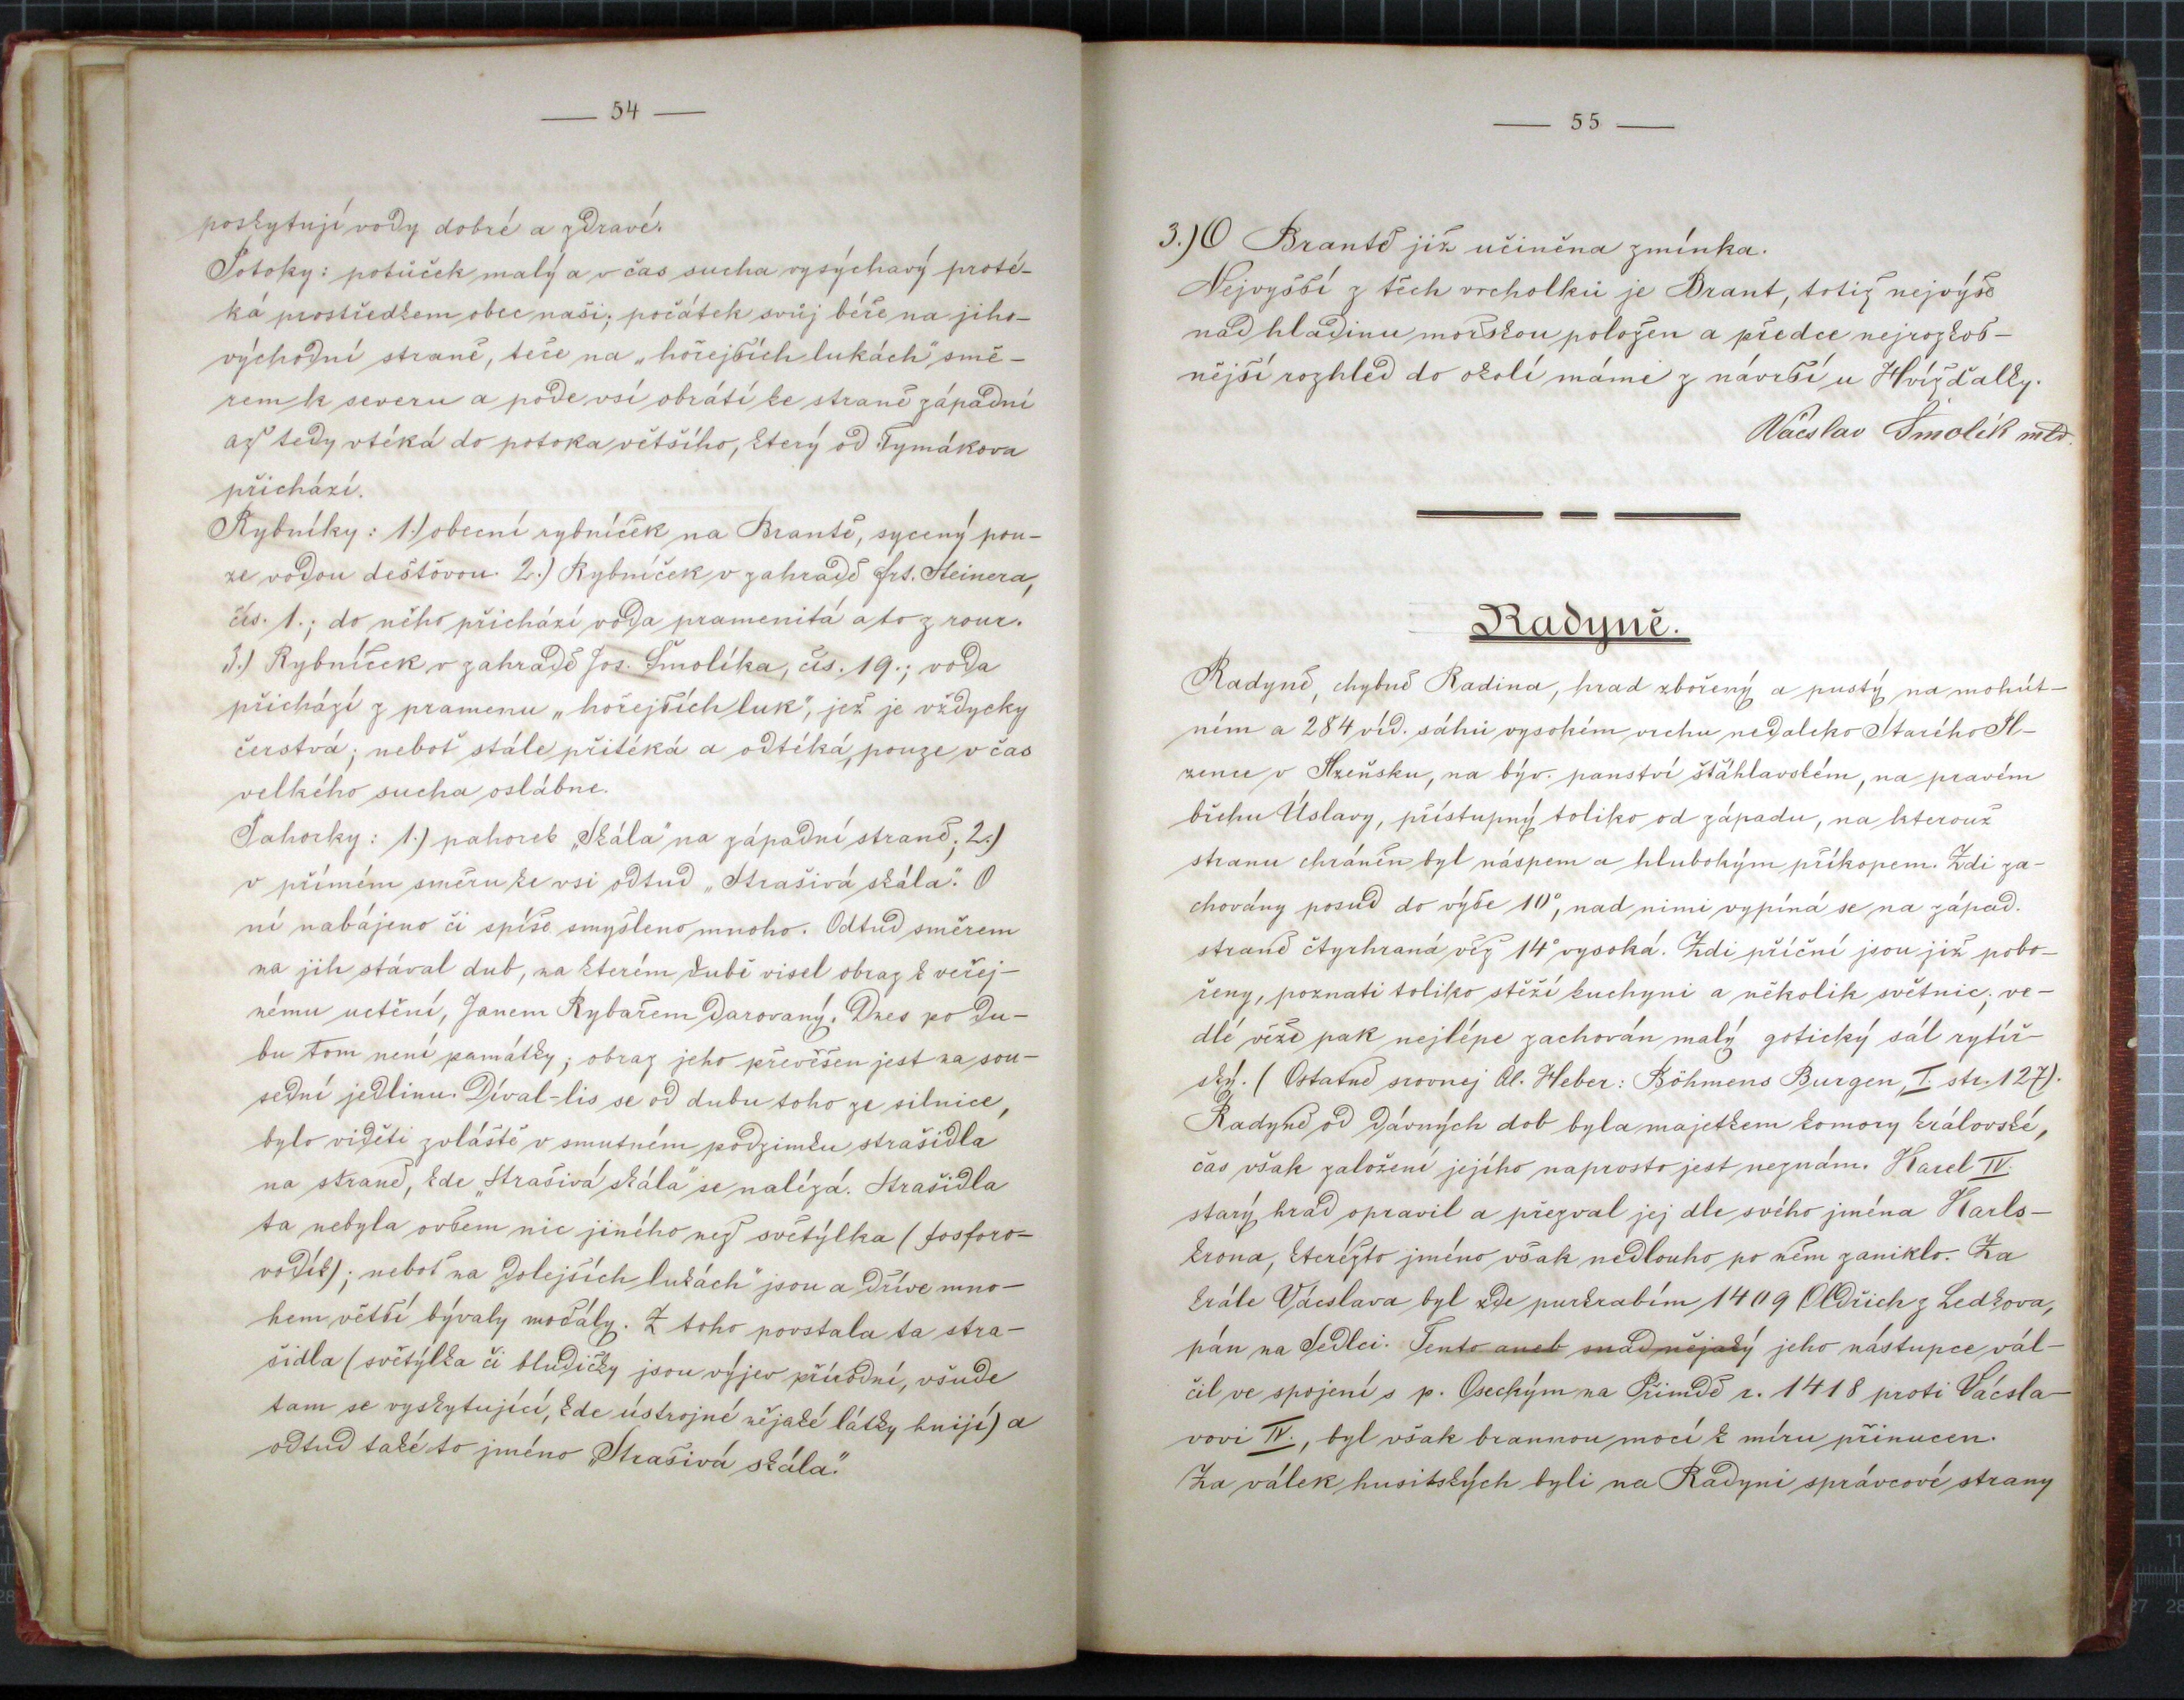 — 54 —
poskytují vody dobré a zdravé.
Potoky: potůček malý a v čas sucha vysýchavý proté-
ká prostředkem obec naši; počátek svůj béře na jiho-
východní straně, teče na „hořejších lukách" smě-
rem k severu a pode vsí obrátí ke straně západní
až tedy vtéká do potoka většího, který od Tymákova
přichází.
Rybníky: 1.) obecní rybníček na Brantě, sycený pou-
ze vodou dešťovou. 2.) Rybníček v zahradě Frt. Steinera,
čís. 1.; do něho přichází voda pramenitá a to z rour.
3.) Rybníček v zahradě Jos. Smolíka, čís. 19.; voda
přichází z pramenu „hořejších luk", jež je vždycky
čerstvá; neboť stále přitéká a odtéká, pouze v čas
velkého sucha oslábne.
Pahorky: 1.) pahorek „Skála" na západní straně; 2.)
v přímém směru ke vsi odtud „Strašivá skála". O
ní nabájeno či spíše smyšleno mnoho. Odtud směrem
na jih stával dub, na kterém dubě visel obraz k veřej-
nému uctění, Janem Rybařem darovaný. Dnes po du-
bu tom není památky; obraz jeho převěšen jest na sou-
sední jedlinu. Díval-lis se od dubu toho ze silnice,
bylo viděti zvláště v smutném podzimku strašidla
na straně, kde „Strašivá skála" se nalézá. Strašidla
ta nebyla ovšem nic jiného než světýlka (fosforo-
vodík); neboť na „dolejších lukách" jsou a dříve mno-
hem větší bývaly močály. Z toho povstala ta stra-
šidla (světýlka či bludičky jsou výjev přírodní, všude
tam se vyskytující, kde ústrojné nějaké látky hnijí) a
odtud také to jméno „Strašivá skála."
— 55 —
3.) O Brantě již učiněna zmínka.
Nejvyšší z těch vrcholků je Brant, totiž nejvýše
nad hladinu mořskou položen a předce nejrozkoš-
nější rozhled do okolí máme z návrší u Hvížďalky.
Václav Smolík mld.
Radyně.
Radyně, chybně Radina, hrad zbořený a pustý na mohút-
ném a 284 víd. sáhů vysokém vrchu nedaleko Starého Pl-
zence v Plzeňsku, na býv. panství šťáhlavském, na pravém
břehu Úslavy, přístupný toliko od západu, na kterouž
stranu chráněn byl náspem a hlubokým příkopem. Zdi za-
chovány posud do výše 10°, nad nimi vypíná se na západ.
straně čtyrhraná věž 14° vysoká. Zdi příční jsou již pobo-
řeny, poznati toliko stěží kuchyni a několik světnic; ve-
dlé věže pak nejlépe zachován malý gotický sál rytíř-
ský. (Ostatně srovnej Al. Heber: Böhmens Burgen, I. str. 127).
Radyně od dávných dob byla majetkem komory královské,
čas však založení jejího naprosto jest neznám. Karel IV.
starý hrad opravil a přezval jej dle svého jména Karls-
krona, kteréžto jméno však nedlouho po něm zaniklo. Za
krále Václava byl zde purkrabím 1409 Oldřich z Ledkova,
pán na Sedlci. Tento aneb snad nějaký jeho nástupce vál-
čil ve spojení s p. Oseckým na Přimdě r. 1418 proti Václa-
vovi IV., byl však brannou mocí k míru přinucen.
Za válek husitských byli na Radyni správcové strany